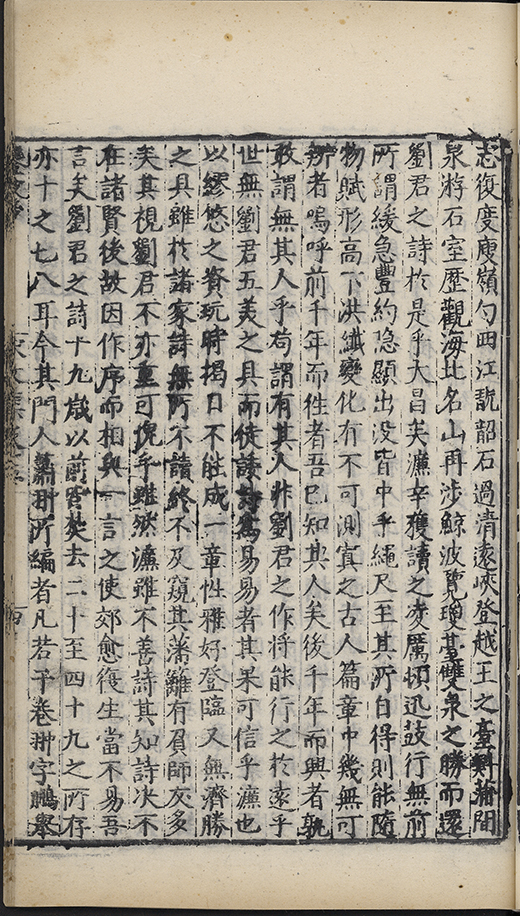 志復度庾嶺勺西江訛韶石過清遠峽登越王之臺㪺蒲間
泉游石室歷觀海北名山再涉鯨波覽瓊臺雙泉之勝而還
劉君之詩於是乎大昌矣濂幸獲讀之凌厲頓迅鼓行無前
所謂緩急豐約隱顯出没皆中乎繩尺至其所自得則能隨
物賦形高下洪纖變化有不可測寘之古人篇章中幾無可
辨者嗚呼前千年而徃者吾已知其人矣後千年而興者孰
敢謂無其人乎苟謂有其人非劉君之作将能行之於遠乎
世無劉君五美之具而徒諉詩爲易易者其果可信乎濂也
以繆悠之資玩時揭日不能成一章性雅好登臨又無濟勝
之具雖於諸家詩無所不讀終不及窺其藩籬有負師友多
矣其視劉君不亦重可愧乎雖然濂雖不善詩其知詩决不
在諸賢後故因作序而相與一言之使郊愈復生當不易吾
言矣劉君之詩十九歲以前皆焚去二十至四十九之所存
亦十之七八耳今其門人蕭翀所編者凡若干卷翀字鵬舉